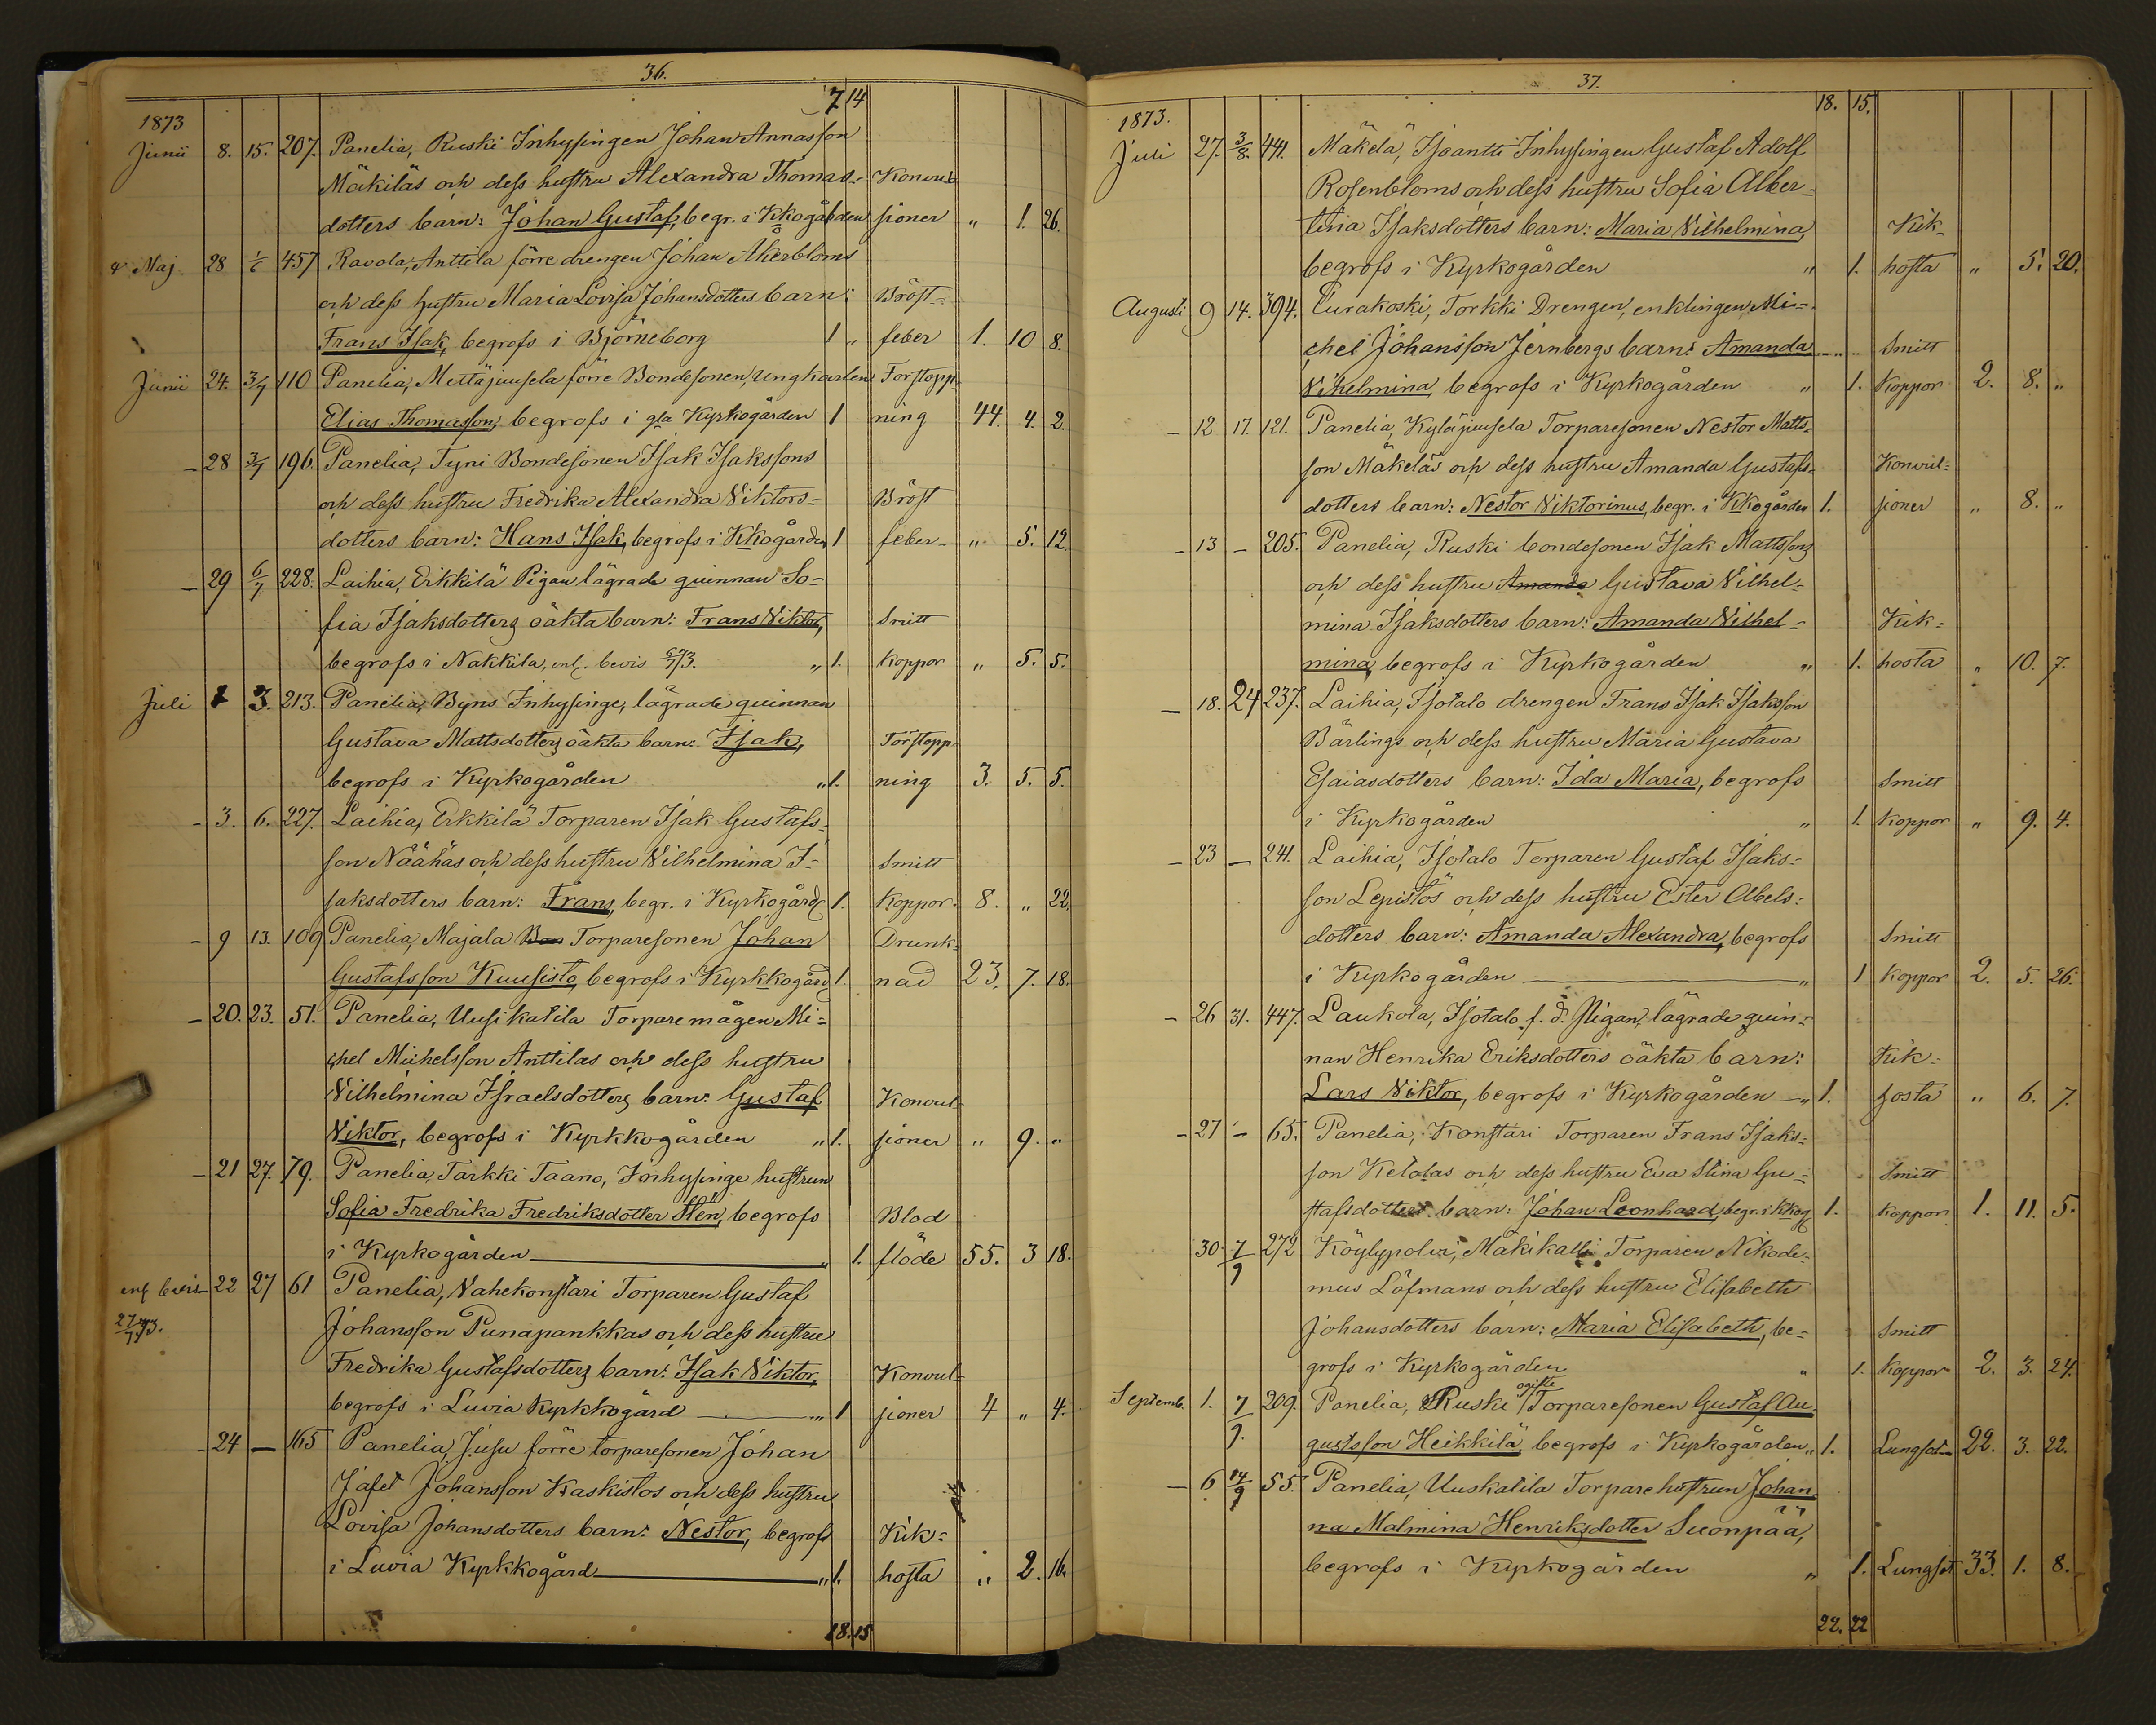 36.
7 14
1873
Junii 8. 15. 207. Panelia, Ruski Inhysingen Johan Annasson
Mäkiläs och dess hustru Alexandra Thomas- Konvul-
dotters barn: Johan Gustaf, begr. i Kkogården sioner " 1. 26.
Maj 28 1/6 457 Ravola, Anttila förre drengen Johan Åkerbloms
och dess hustru Maria Lovisa Johansdotters barn: Bröst-
Frans Isak, begrofs i Björneborg 1 " feber 1. 10 8.
Junii 24. 3/7 110 Panelia, Mettäjuusela förre Bondesonen, ungkarlen Förstopp-
Elias Thomasson, begrofs i gla Kyrkogården 1 ning 44. 4. 2.
— 28 3/7 196. Panelia, Tyni Bondesonen Isak Isakssons
och dess hustru Fredrika Alexandra Viktors- Bröst
dotters barn: Hans Isak, begrofs i Kkogården 1 feber " 5. 12.
— 29 6/7 228. Laihia, Erkkilä Pigan lägrade quinnan So-
fia Isaksdotters oäkta barn: Frans Viktor, Smitt
begrofs i Nakkila, enl. bevis 6/7 73. " 1. Koppor " 5. 5.
Juli 1 3. 213. Panelia, Byns Inhysinge, lägrade quinnan
Gustava Mattsdotters oäkta barn: Isak, Förstopp-
begrofs i Kyrkogården " 1. ning 3. 5. 5.
- 3. 6. 227. Laihia, Erkkilä Torparen Isak Gustafs-
son Näähäs och dess hustru Vilhelmina I- Smitt
saksdotters barn: Frans, begr. i Kyrkogård 1. Koppor. 8. " 22.
- 9 13. 109 Panelia, Majala Bon Torparesonen Johan Drunk-
Gustafsson Kuusisto, begrofs i Kyrkkogård 1. nad 23. 7. 18.
— 20. 23. 51. Panelia, Uusikatila Torparemågen Mi-
chel Michelsson Anttilas och dess hustru
Vilhelmina Israelsdotters barn: Gustaf Konvul-
Viktor, begrofs i Kyrkkogården " 1. sioner " 9. "
— 21 27. 79. Panelia, Tarkki Taano, Inhysinge hustrun
Sofia Fredrika Fredriksdotter Stén, begrofs Blod
i Kyrkogården " 1. flöde 55. 3 18.
enl bevis 22 27 61 Panelia, Vahekonstari Torparen Gustaf
27/7 73. Johansson Punapankkas och dess hustru
Fredrika Gustafsdotters barn: Isak Viktor, Konvul-
begrofs i Luvia Kyrkkogård " 1 sioner 4 " 4.
— 24 — 165 Panelia, Jusu förre torparesonen Johan
Jafet Johansson Kaskistos och dess hustru
Lovisa Johansdotters barn: Nestor, begrofs Kik-
i Luvia Kyrkkogård " 1. hosta " 2. 16.
18. 15
37.
18. 15.
1873.
Juli 27. 3/8. 441. Mäkelä, Isoantti Inhysingen Gustaf Adolf
Rosenbloms och dess hustru Sofia Alber-
tina Isaksdotters barn: Maria Vilhelmina, Kik-
begrofs i Kyrkogården " 1. hosta " 5. 20.
Augusti 9 14. 394. Turakoski, Torkki Drengen, enklingen Mi-
chel Johansson Jernbergs barn: Amanda Smitt
Vilhelmina, begrofs i Kyrkogården " 1. Koppor 2. 8. "
— 12 17. 121. Panelia, Kyläjuusela Torparesonen Nestor Matts-
son Mäkeläs och dess hustru Amanda Gustafs- Konvul-
dotters barn: Nestor Viktorinus, begr. i Kkogården 1. sioner " 8. "
— 13 — 205. Panelia, Ruski bondesonen Isak Mattssons
och dess hustru Amanda Gustava Vilhel-
mina Isaksdotters barn: Amanda Vilhel- Kik-
mina, begrofs i Kyrkogården " 1. hosta " 10. 7.
— 18. 24 237. Laihia, Isotalo drengen Frans Isak Isaksson
Bärlings och dess hustru Maria Gustava
Esaiasdotters barn: Ida Maria, begrofs Smitt
i Kyrkogården " 1. Koppor " 9. 4.
— 23 — 241. Laihia, Isotalo Torparen Gustaf Isaks-
son Lepistös och dess hustru Ester Abels-
dotters barn: Amanda Alexandra, begrofs Smitt
i Kyrkogården " 1 Koppor 2. 5. 26.
— 26 31. 447. Laukola, Isotalo f. d. Pigan, lägrade quin-
nan Henrika Eriksdotters oäkta barn: Kik-
Lars Viktor, begrofs i Kyrkogården " 1. hosta " 6. 7.
— 27 — 65. Panelia, Konstari Torparen Frans Isaks-
son Ketolas och dess hustru Eva Stina Gu- Smitt
stafsdotters barn: Johan Leonhard, begr. i Kkog 1. Koppor 1. 11. 5.
30. 7/9 272 Köylypolvi, Mäkikalli Torparen Nikode-
mus Löfmans och dess hustru Elisabeth
Johansdotters barn: Maria Elisabeth, be- Smitt
grofs i Kyrkogården " 1. Koppor 2. 3. 24.
Septemb. 1. 7/9. 209. Panelia, Ruski ogifte Torparesonen Gustaf Au-
gustsson Heikkilä, begrofs i Kyrkogården " 1. Lungsot 22. 3. 22.
— 6 14/9 55. Panelia, Uuskatila Torpare hustrun Johan-
na Malmina Henriksdotter Suonpää,
begrofs i Kyrkogården " 1. Lungsot 33. 1. 8.
22. 22